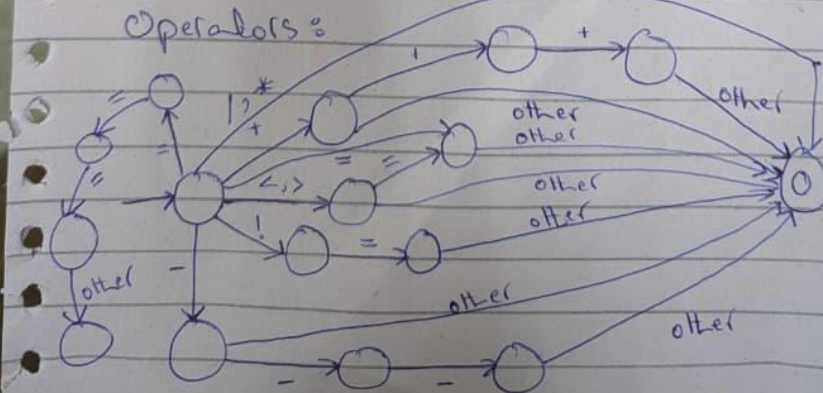 Operators:
+
+
=
|,*
other
=
+
other
other
=
=
=
<,>
other
!
=
other
-
other
other
other
-
-